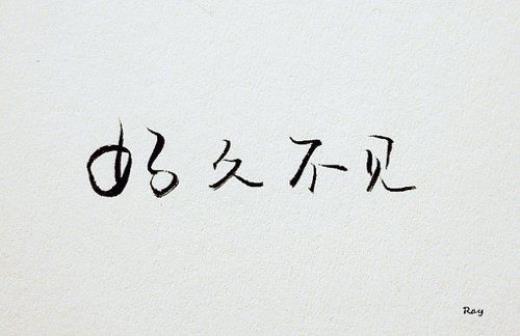 好久不见
Ray